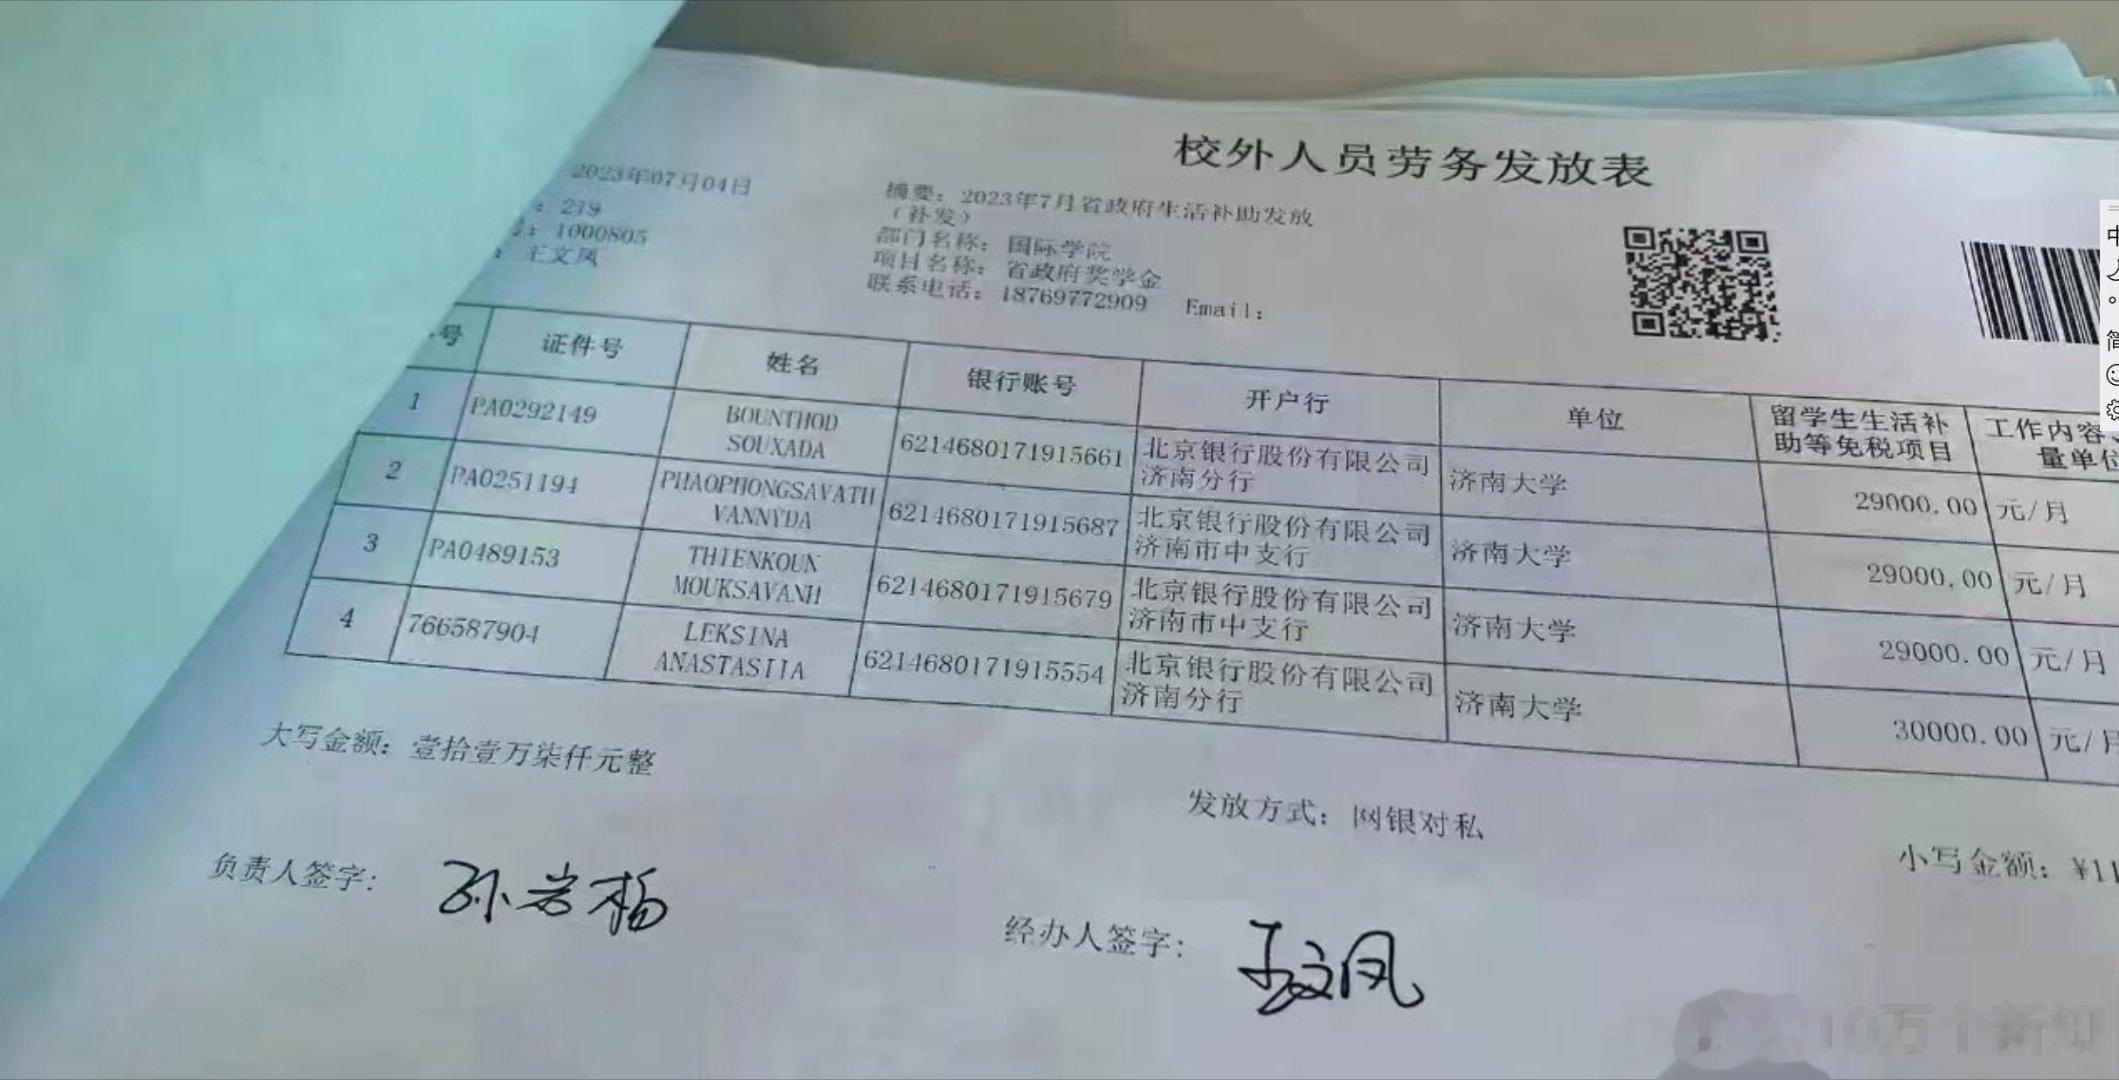 校外人员劳务发放表
2023年07月04日
摘要：2023年7月省政府生活补助发放
（补发）
：219
：1000805
部门名称：国际学院
：王文凤
项目名称：省政府奖学金
联系电话：18769772909 Email：
号 证件号 姓名 银行账号 开户行 单位 留学生生活补
助等免税项目 工作内容
量单位
1 PA0292149 BOUNTHOD
SOUXADA 6214680171915661 北京银行股份有限公司
济南分行 济南大学 29000.00 元/月
2 PA0251194 PHAOPHONGSAVATH
VANNYDA 6214680171915687 北京银行股份有限公司
济南市中支行 济南大学 29000.00 元/月
3 PA0489153 THIENKOUN
MOUKSAVANH 6214680171915679 北京银行股份有限公司
济南市中支行 济南大学 29000.00 元/月
4 766587904 LEKSINA
ANASTASIIA 6214680171915554 北京银行股份有限公司
济南分行 济南大学 30000.00 元/月
大写金额：壹拾壹万柒仟元整
发放方式：网银对私
小写金额：¥11
负责人签字：孙岩杨
经办人签字：王文凤
10万个新知
中
简